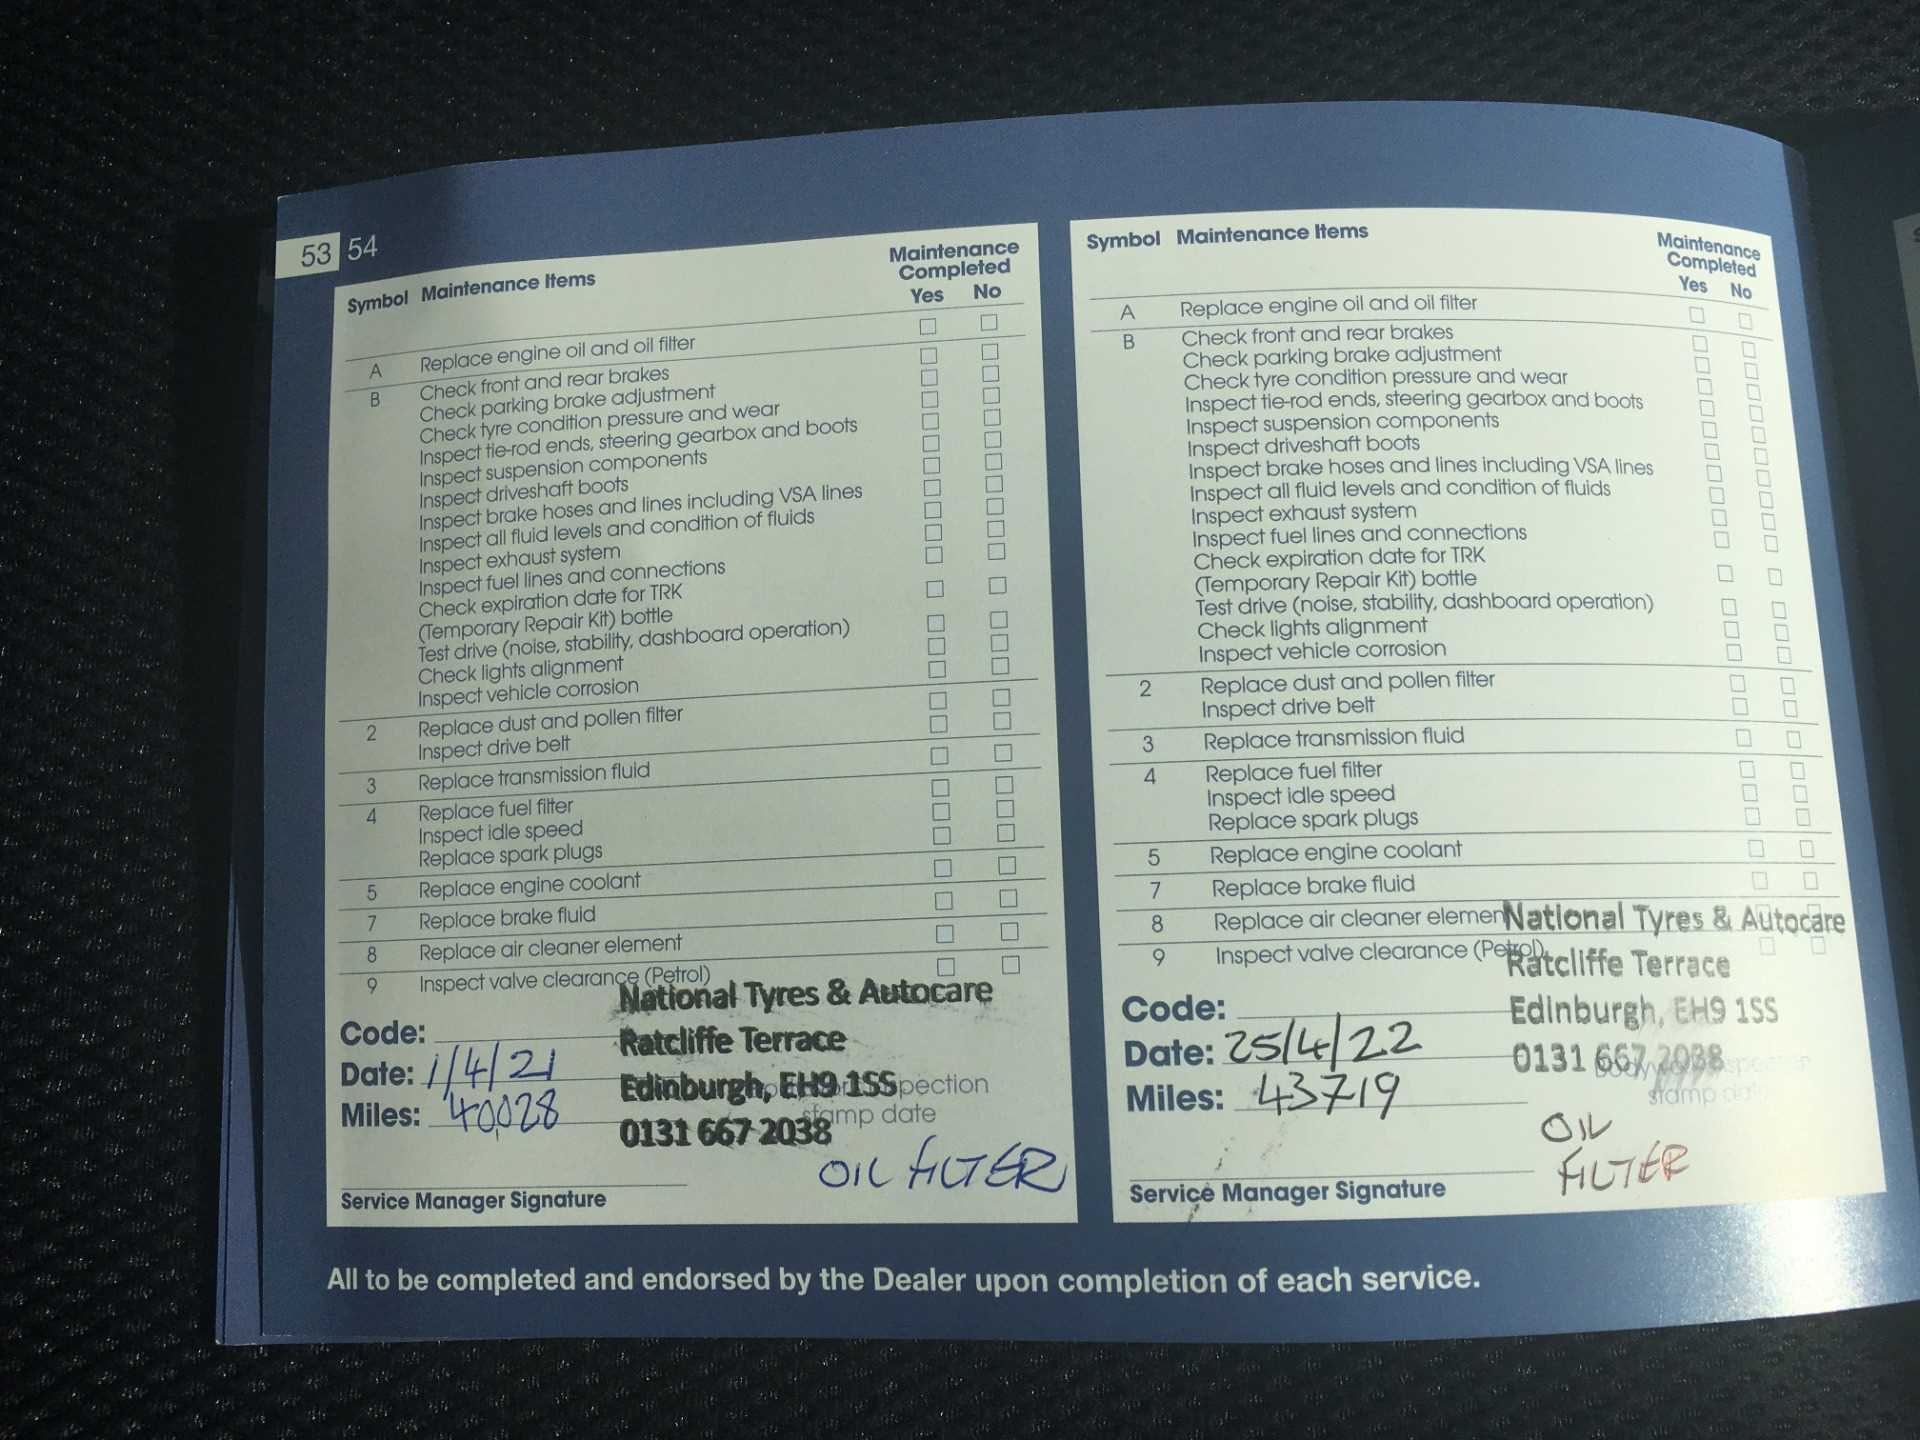 53 54
Symbol Maintenance Items Maintenance Completed
Yes No
A Replace engine oil and oil filter
B Check front and rear brakes
Check parking brake adjustment
Check tyre condition pressure and wear
Inspect tie-rod ends, steering gearbox and boots
Inspect suspension components
Inspect driveshaft boots
Inspect brake hoses and lines including VSA lines
Inspect all fluid levels and condition of fluids
Inspect exhaust system
Inspect fuel lines and connections
Check expiration date for TRK
(Temporary Repair Kit) bottle
Test drive (noise, stability, dashboard operation)
Check lights alignment
Inspect vehicle corrosion
2 Replace dust and pollen filter
Inspect drive belt
3 Replace transmission fluid
4 Replace fuel filter
Inspect idle speed
Replace spark plugs
5 Replace engine coolant
7 Replace brake fluid
8 Replace air cleaner element
9 Inspect valve clearance (Petrol)
National Tyres & Autocare
Ratcliffe Terrace
Edinburgh, EH9 1SS
0131 667 2038
Code:
Date: 1/4/21
Miles: 40028
stamp date
OIL FILTER
Service Manager Signature
Symbol Maintenance Items Maintenance Completed
Yes No
A Replace engine oil and oil filter
B Check front and rear brakes
Check parking brake adjustment
Check tyre condition pressure and wear
Inspect tie-rod ends, steering gearbox and boots
Inspect suspension components
Inspect driveshaft boots
Inspect brake hoses and lines including VSA lines
Inspect all fluid levels and condition of fluids
Inspect exhaust system
Inspect fuel lines and connections
Check expiration date for TRK
(Temporary Repair Kit) bottle
Test drive (noise, stability, dashboard operation)
Check lights alignment
Inspect vehicle corrosion
2 Replace dust and pollen filter
Inspect drive belt
3 Replace transmission fluid
4 Replace fuel filter
Inspect idle speed
Replace spark plugs
5 Replace engine coolant
7 Replace brake fluid
8 Replace air cleaner element
9 Inspect valve clearance (Petrol)
National Tyres & Autocare
Ratcliffe Terrace
Edinburgh, EH9 1SS
0131 667 2038
Code:
Date: 25/4/22
Miles: 43719
stamp
OIL
FILTER
Service Manager Signature
All to be completed and endorsed by the Dealer upon completion of each service.